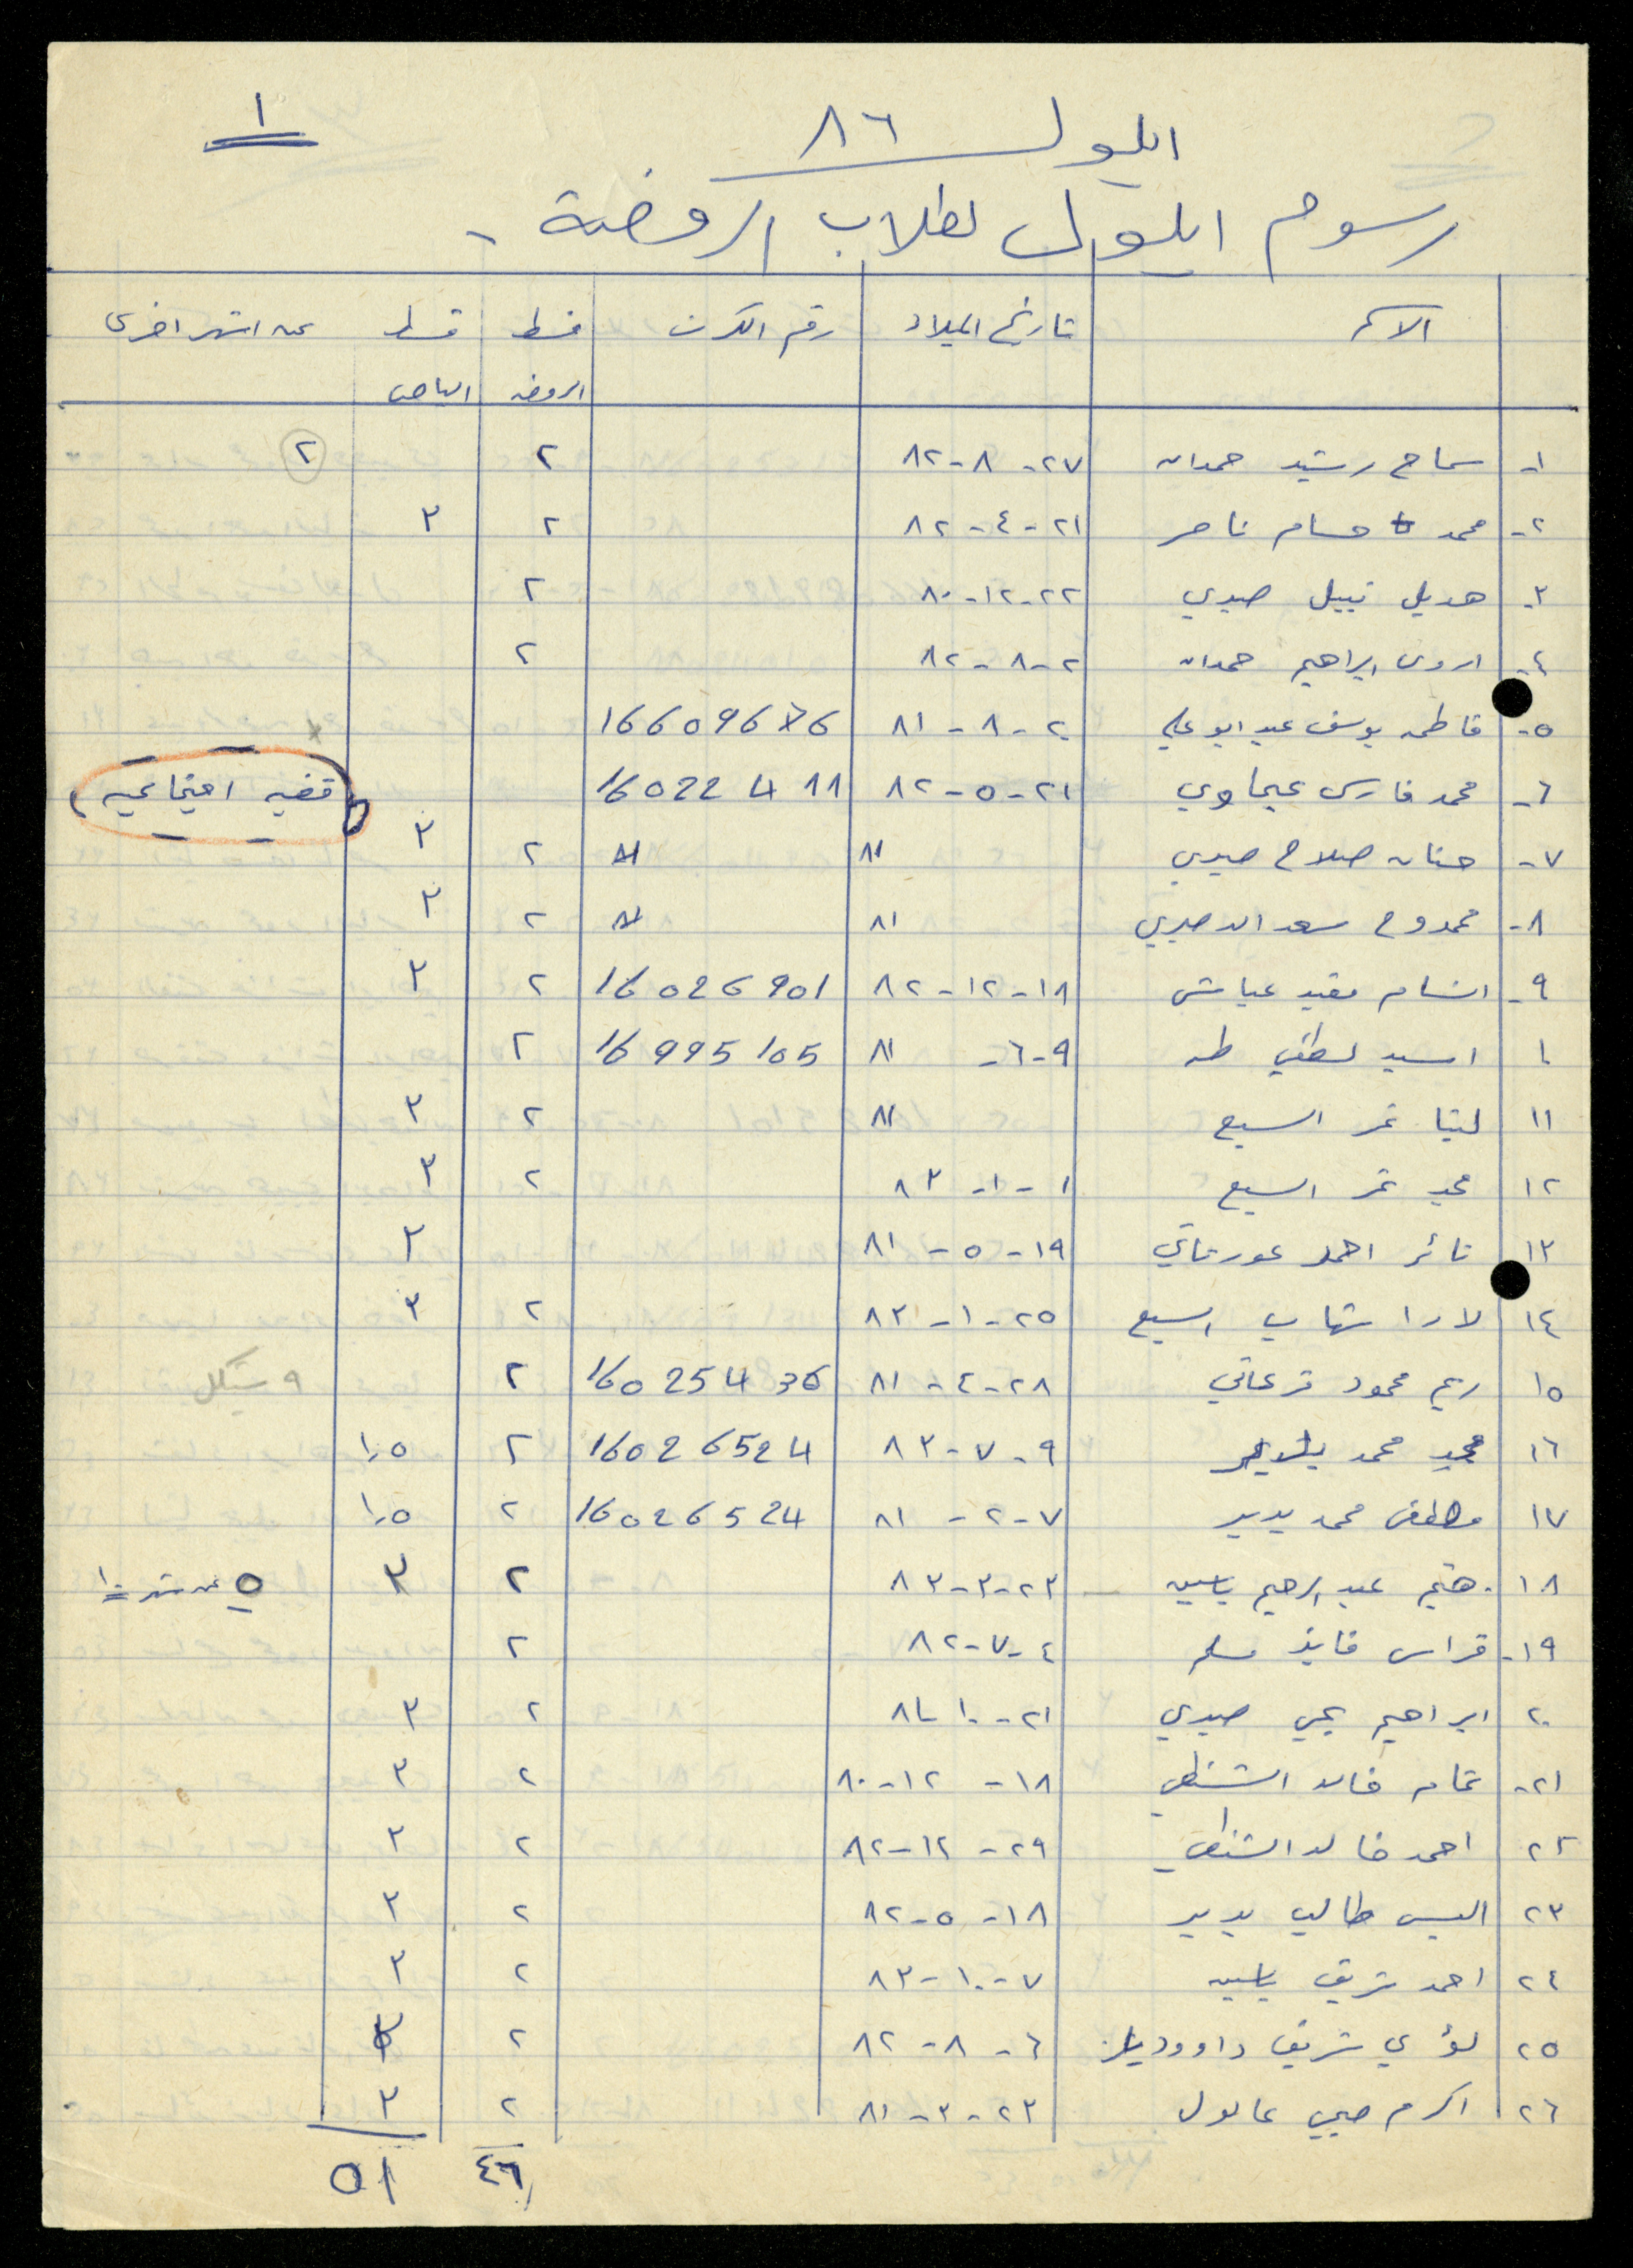 ١
ايلول ٨٦
رسوم ايلول لطلاب الروضة -
الاسم تاريخ الميلاد رقم الكرت قسط الروضه قسط الباص عن اشهر اخرى
١- سماح رشيد حمدان ٢٧-٨-٨٢ ٢ ٢
٢- محمد حسام ناصر ٢١-٤-٨٢ ٢ ٣
٣- هديل نبيل صبري ٢٢-١٢-٨٠ ٢
٤- اروى ابراهيم حمدان ٢-٨-٨٢ ٢
٥- فاطمه يوسف عبد ابو علي ٢-٨-٨١ 16609676
٦- محمد فارس عجاوي ٢١-٥-٨٢ 16022411 قضيه اجتماعيه
٧- حنان صلاح صبري ٨١ ٢ ٣
٨- ممدوح سعد الد صبري ٨١ ٢ ٣
٩- ابتسام مفيد عياش ١٨-١٢-٨٢ 16026901 ٢ ٣
١٠ اسيد لطفي طه ٩-٦- ٨١ 16995105 ٢
١١ لينا نمر السبع ٨١ ٢ ٣
١٢ مجد نمر السبع ١-١-٨٣ ٢ ٣
١٣ ثائر احمد عورتاني ١٩-٥-٨١ ٣
١٤ لارا شهاب السبع ٢٥-١-٨٣ ٢ ٣
١٥ ريم محمود قرعاني ٢٨-٤-٨١ 16025436 ٢ ٩ شيكل
١٦ مجد محمد بدير ٩-٧-٨٣ 16026524 ٢ ١,٥
١٧ مصطفى محمد بدير ٧-٢-٨١ 16026524 ٢ ١,٥
١٨- هيثم عبد الرحيم ياسين ٢٣-٣-٨٣ ٢ ٣ ٥ عن شهر ١٠
١٩- فراس فايز مسلم ٤-٧-٨٢ ٢
٢٠ ابراهيم يحيى صبري ٢١-١٠-٨١ ٢ ٣
٢١- تمام خالد الشنطي ١٨-١٢-٨٠ ٢ ٣
٢٢ احمد خالد الشنطي ٢٩-١٢-٨٢ ٢ ٣
٢٣ اليس طالب بدير ١٨-٥-٨٢ ٢ ٣
٢٤ احمد شريف ياسين ٧-١٠-٨٣ ٢ ٣
٢٥ لؤي شريف داوود ٦-٨-٨٢ ٢ ٣
٢٦ اكرم صبحي عالول ٢٣-٣-٨١ ٢ ٣
٤٦ ٥١